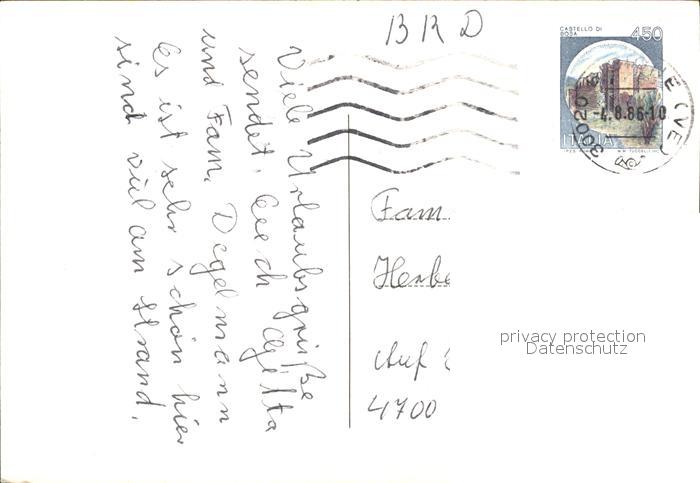 BRD
CASTELLO DI
BOSA
450
ITALIA
30020
-4.8.86-10
E (VE)
Viele Urlaubsgrüße
sendet Euch
und Fam. Degelmann
Es ist sehr schön hier
sind viel am Strand.
Fam.
Herbe
Auf
4700
privacy protection
Datenschutz